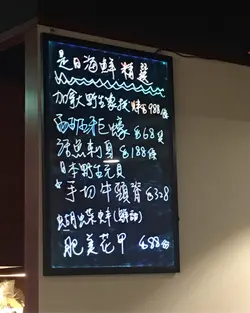 是日海鮮精選
加拿大野生象拔蚌 $988/條
西班牙巨蠔 $68/隻
活魚刺身 $188/條
日本野生元貝
*手切牛頸脊 $328
蝴蝶蚌(郵動)
肥美花甲 $88/份